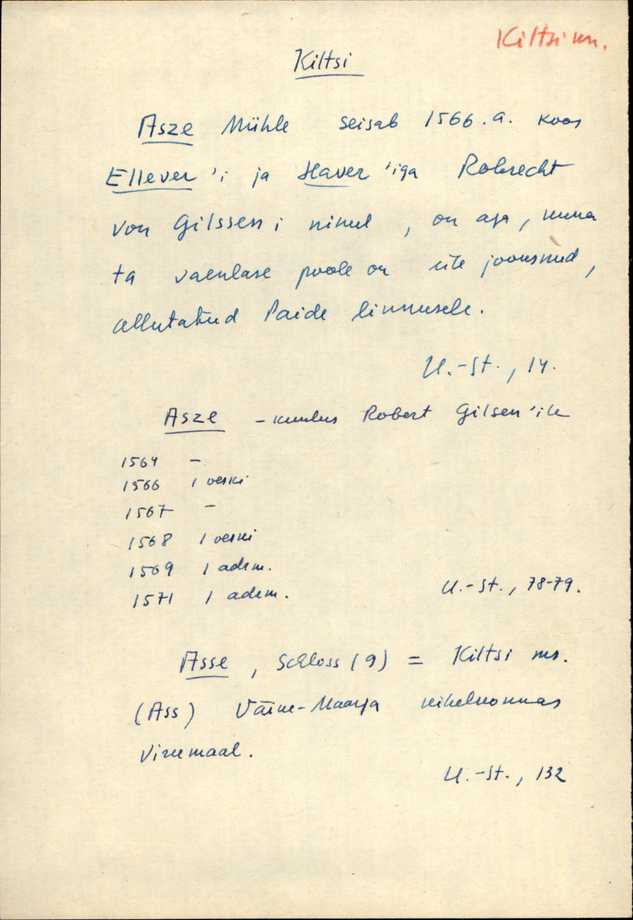 Kiltsi mn.
Kiltsi
Asze Mühle seisab 1566.a. koos
Ellever'i ja Haver'iga Robrecht
von Gilssen'i nimel, on aga, kuna
ta vaenlase poole on üle jooksnud,
allutatud Paide linnusele.
U.-St., 14.
Asze - kuulus Robert Gilsen'ile
1564 -
1566 1 veski
1567 -
1568 1 veski
1569 1 adrm.
1571 1 adrm.
U.-St., 78-79.
Asse, Schloss (9) = Kiltsi ms.
(Ass) Väike-Maarja kihelkonnas
Virumaal.
U.-St., 132